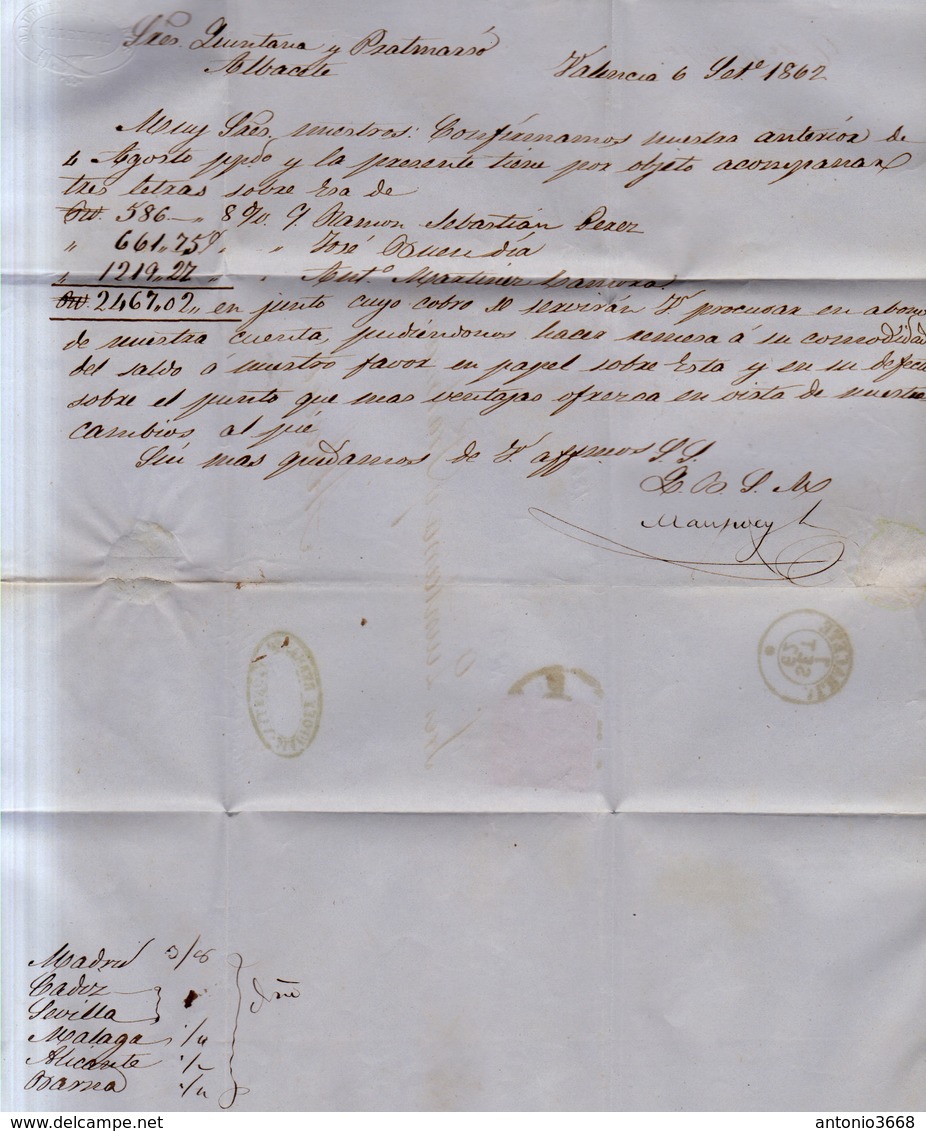 Sres. Quintana y Pratmarsó
Albacete
Valencia 6 Sete. 1862
Muy Sres. nuestros: Confirmamos nuestra anterior de
4 Agosto ppdo y la presente tiene por objeto acompañar
tres letras sobre Esa de
Rvn. 586 — „ 8 d/v. c/ Ramon Sebastián Perez
„ 661„75 „ „ José Buendía
„ 1219„27 „ „ Anto. Martinez
Rvn 2467„02„ en junto cuyo cobro se servirán V. procurar en abono
de nuestra cuenta, pudiéndonos hacer remesa á su comodidad
del saldo á nuestro favor en papel sobre Esta y en su defecto
sobre el punto que mas ventajas ofrezca en vista de nuestros
cambios al pié
Sin mas quedamos de V. affmos S.S.
Q. B. S. M.
Madrid 3/8
Cadiz
Sevilla
Malaga
Alicante
Barna
antonio3668